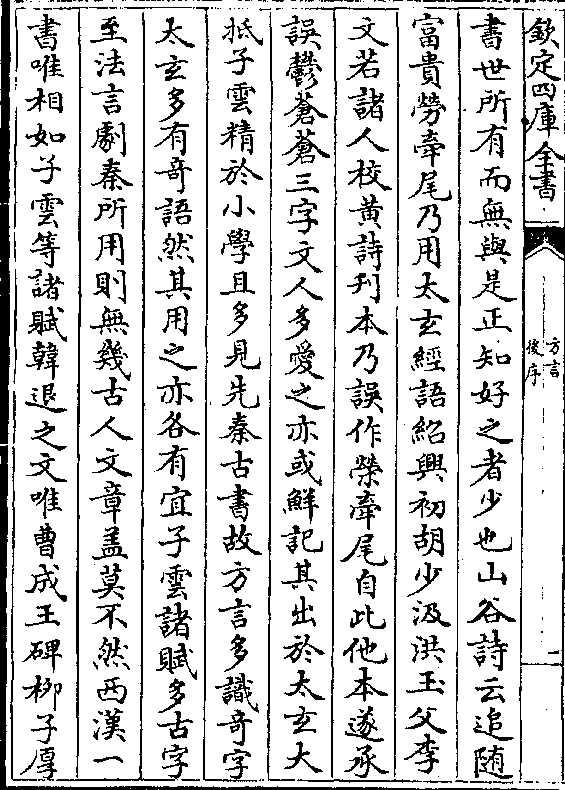 欽定四庫全書
方言
後序
一
書世所有而無與是正知好之者少也山谷詩云追随
富貴勞牽尾乃用太玄經語紹興初胡少汲洪玉父李
文若諸人校黄詩刋本乃誤作榮牽尾自此他本遂承
誤鬱蒼蒼三字文人多愛之亦或鮮記其出於太玄大
抵子雲精於小學且多見先秦古書故方言多識奇字
太玄多有奇語然其用之亦各有宜子雲諸賦多古字
至法言劇秦所用則無幾古人文章盖莫不然西漢一
書唯相如子雲等諸賦韓退之文唯曹成王碑栁子厚